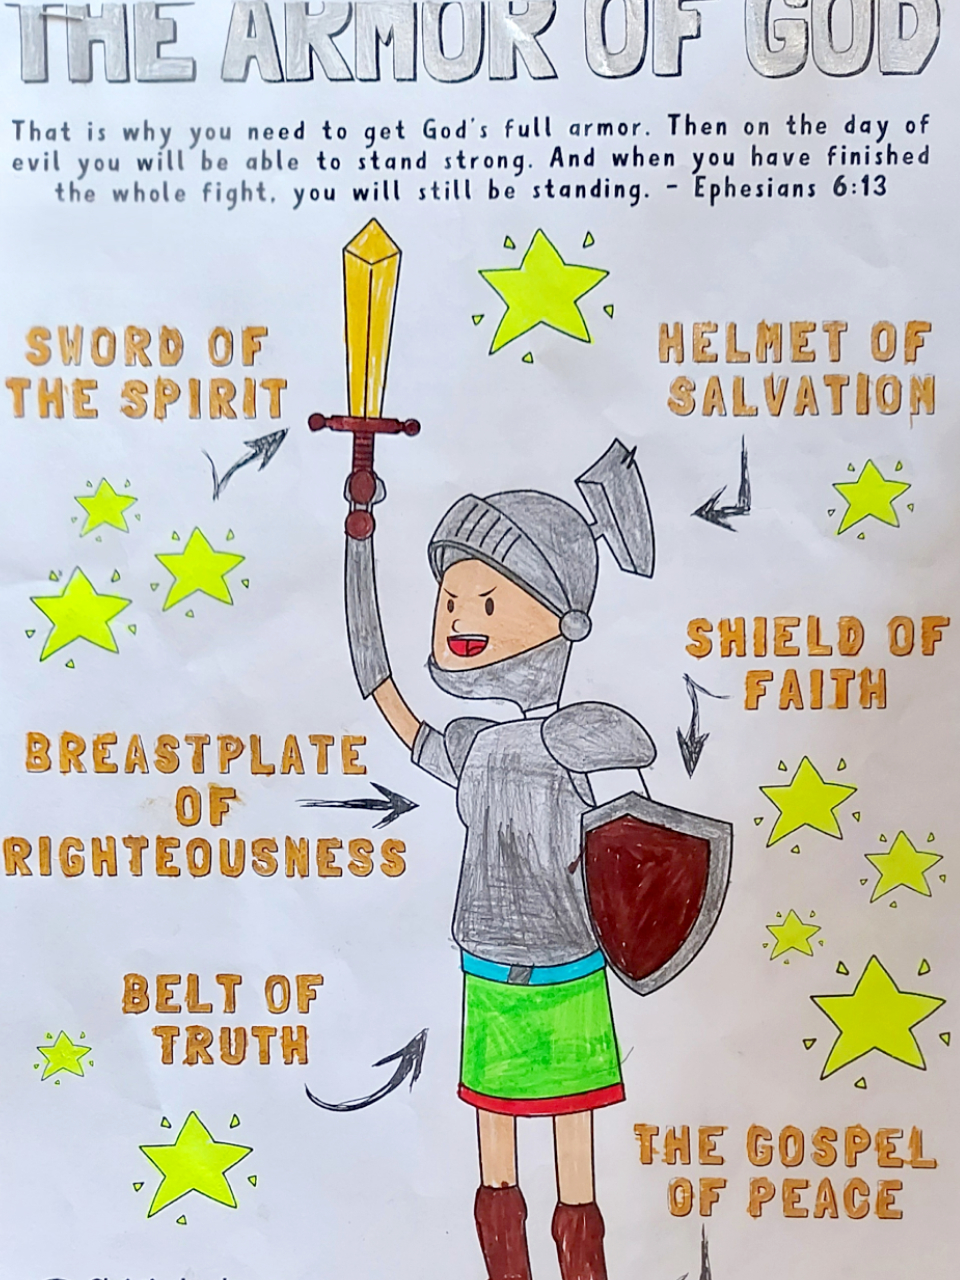 THE ARMOR OF GOD
That is why you need to get God's full armor. Then on the day of
evil you will be able to stand strong. And when you have finished
the whole fight, you will still be standing. - Ephesians 6:13
SWORD OF
THE SPIRIT
HELMET OF
SALVATION
SHIELD OF
FAITH
BREASTPLATE
OF
RIGHTEOUSNESS
BELT OF
TRUTH
THE GOSPEL
OF PEACE